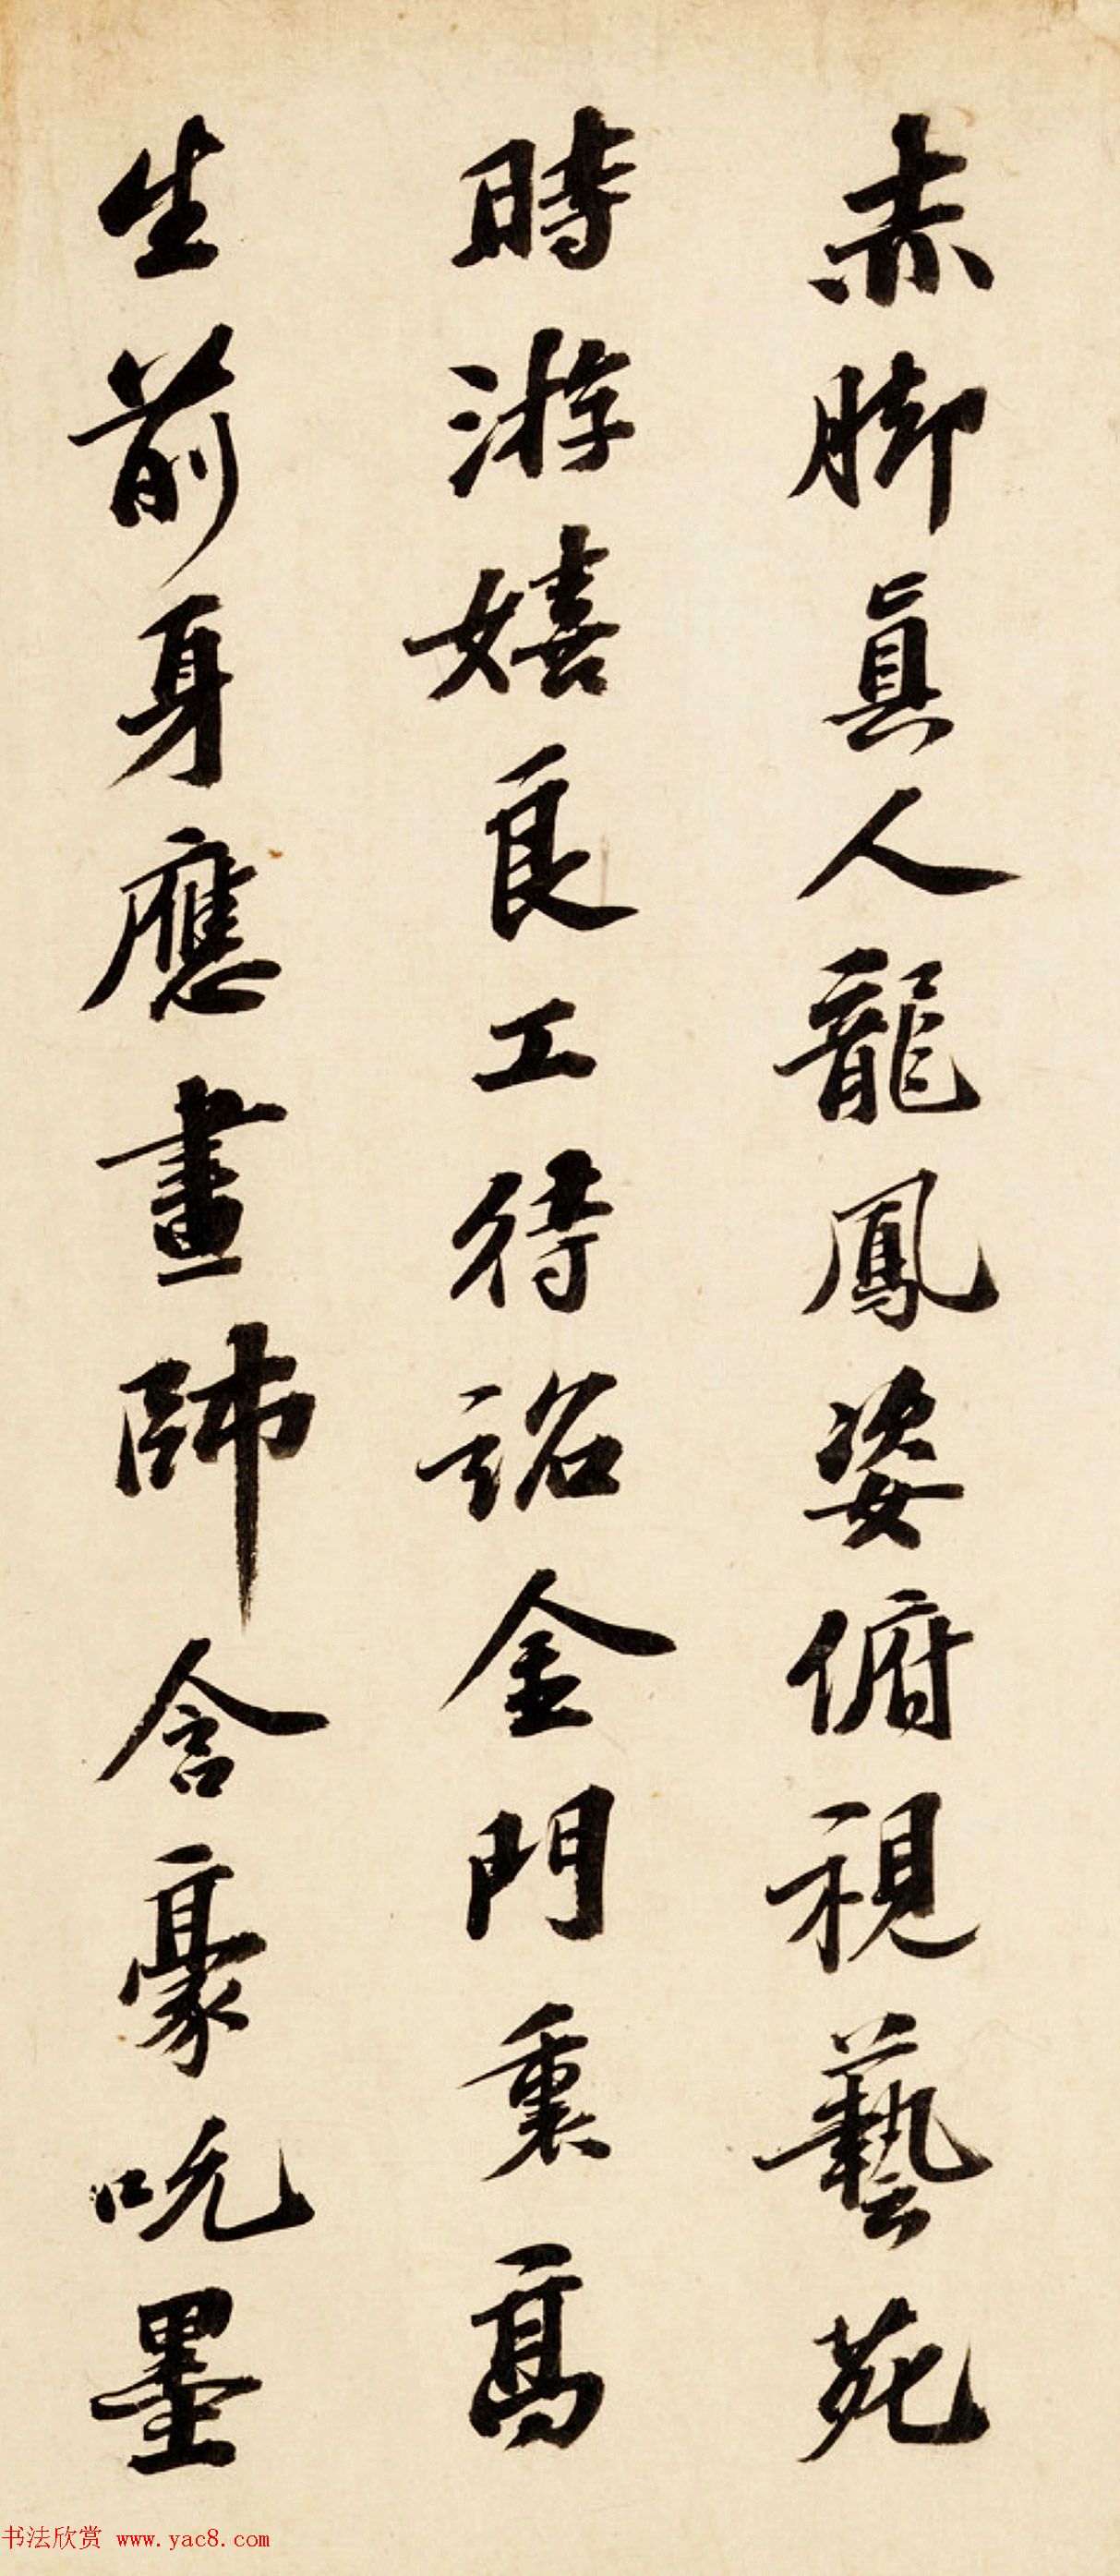 赤脚真人龍鳳姿俯視藝苑
時游嬉良工待詔金門裏高
生前身應畫師含豪吮墨
书法欣赏 www.yac8.com